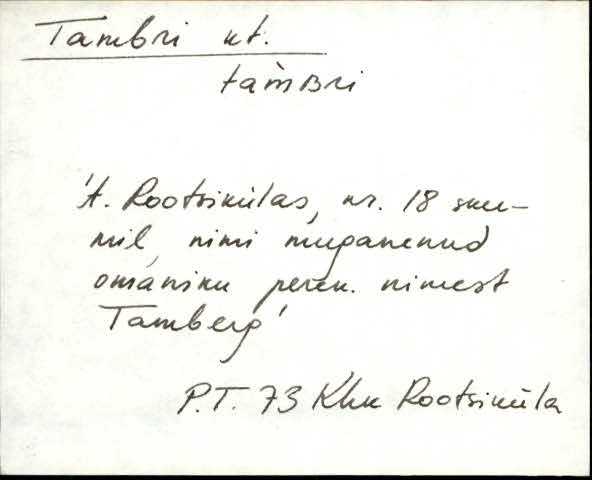 Tambri kt.
tam̀ʙri
't. Rootsikülas, kr. 18 suu-
mil, nimi muganenud
omaniku perek. nimest
Tamberg'
P.T. 73 Khk Rootsiküla